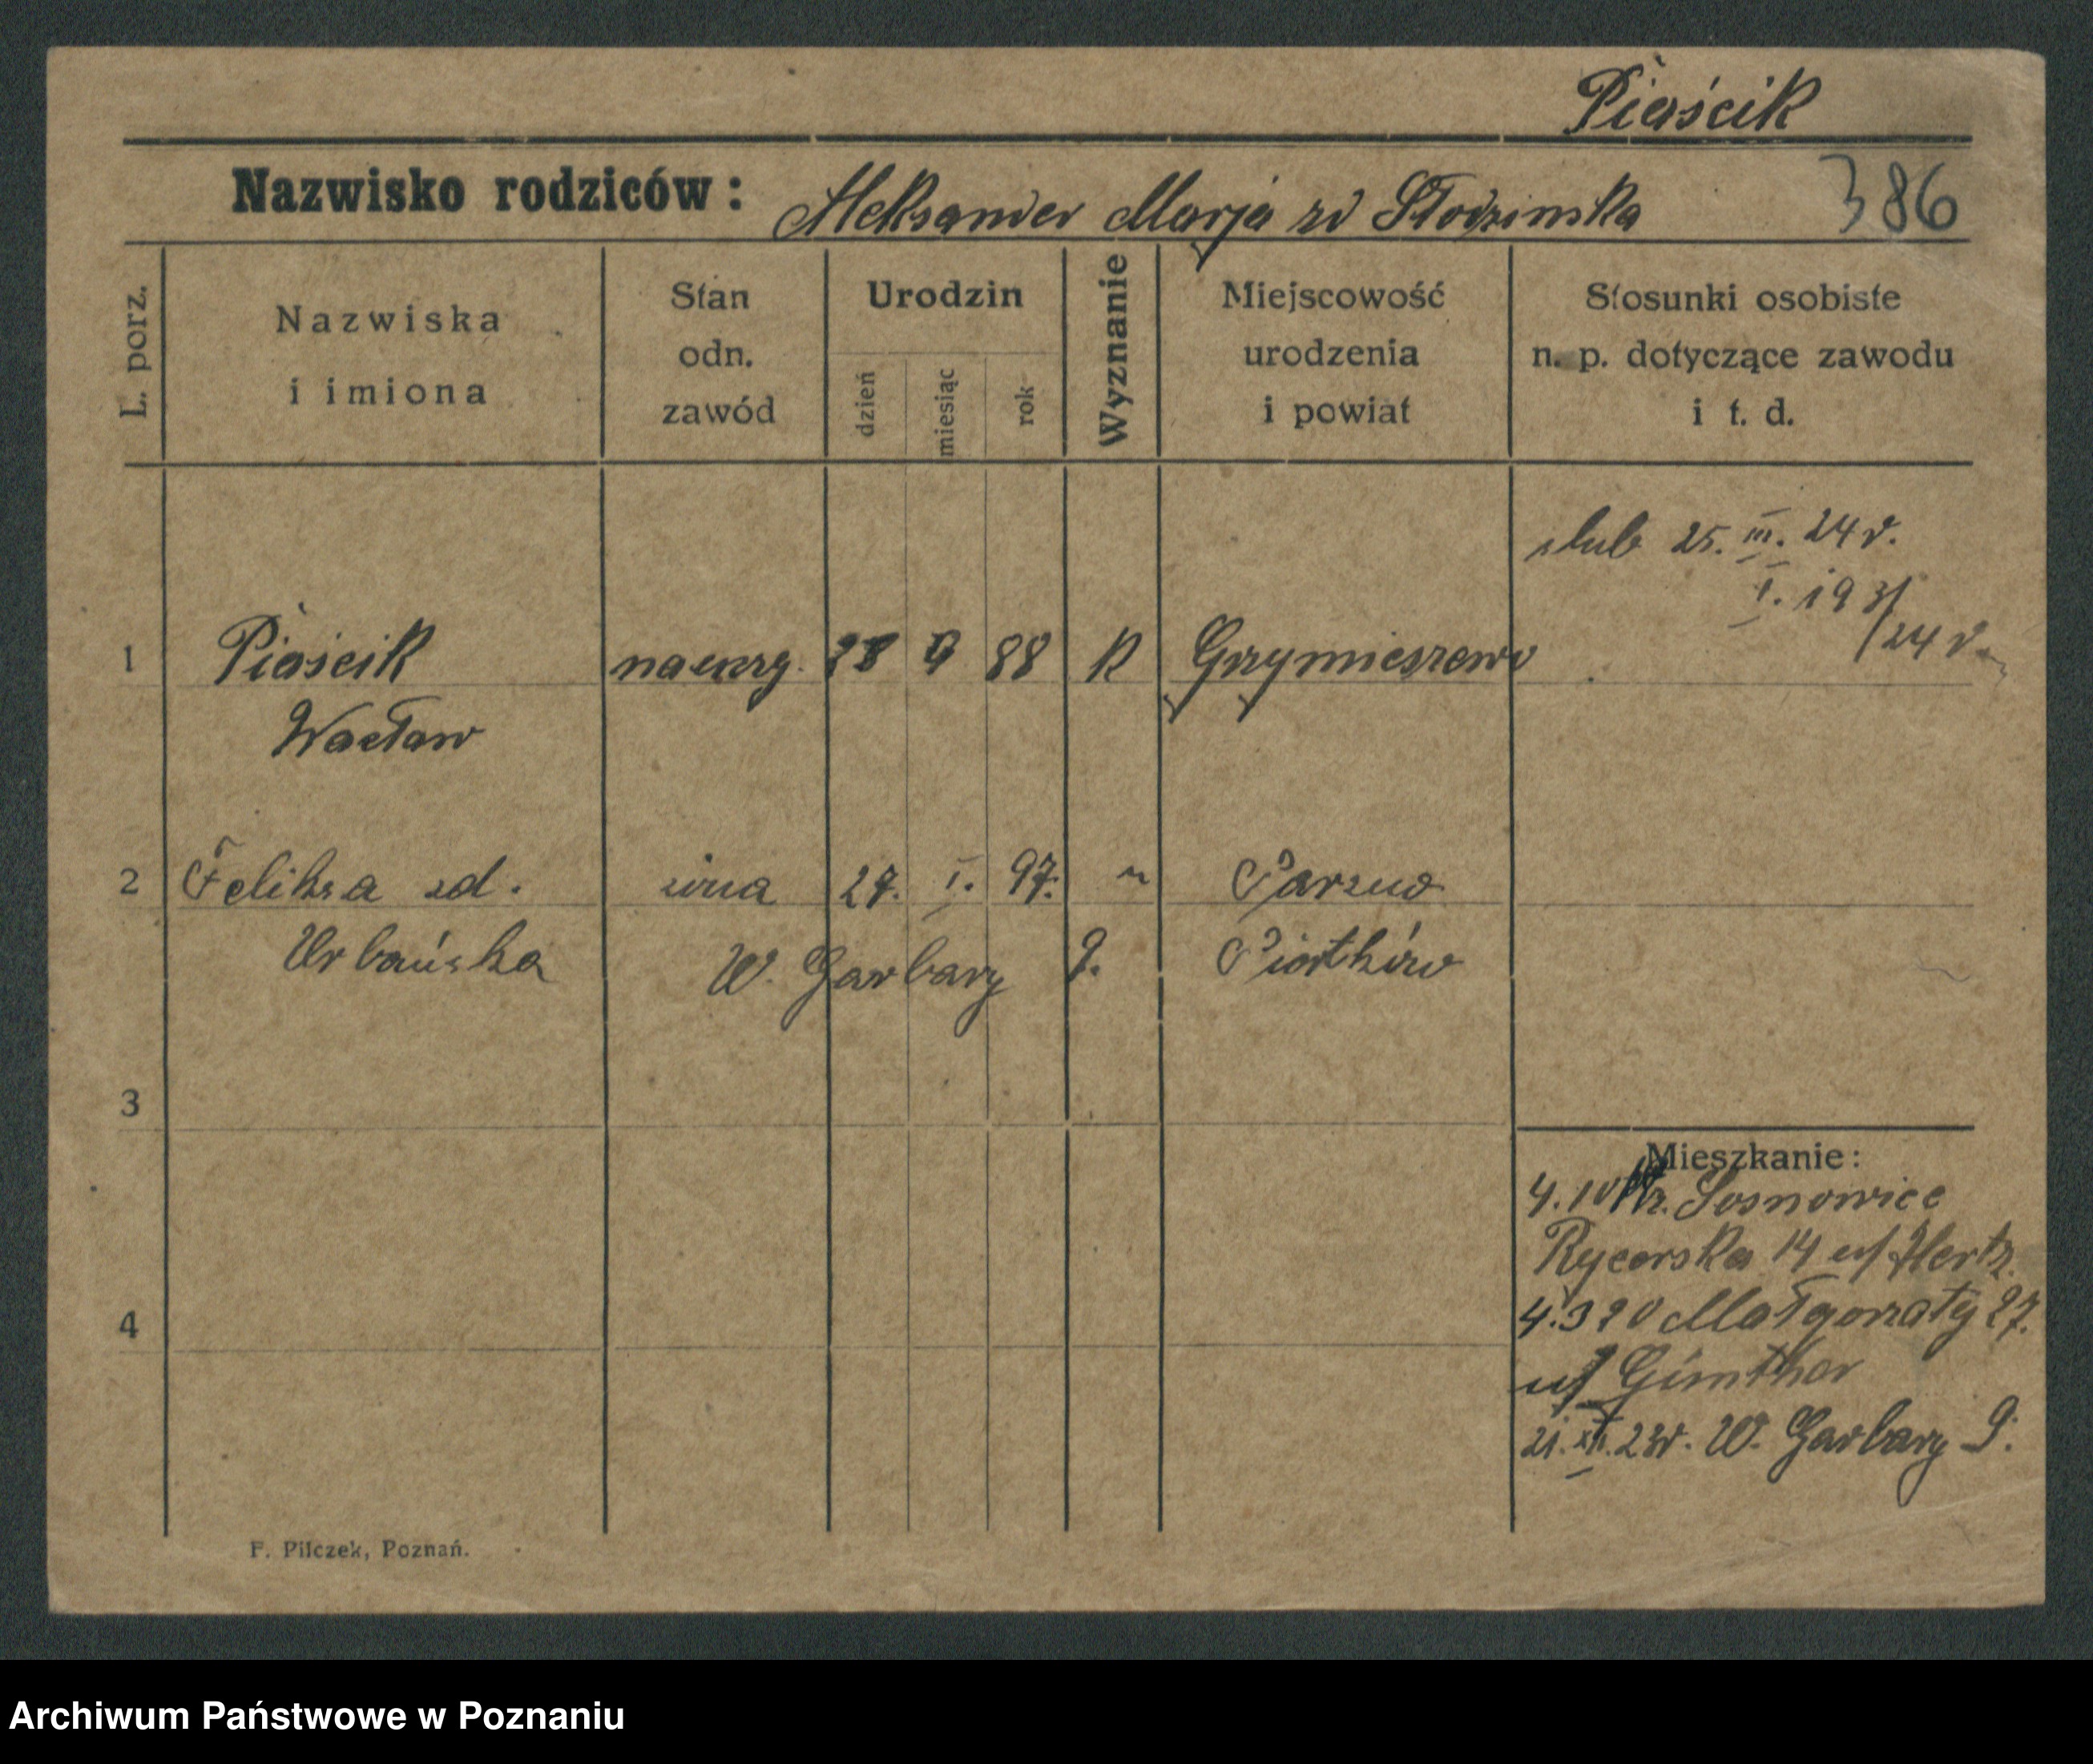 Piaścik
Nazwisko rodziców: Aleksander Marja zd Słodzinska 386
L. porz.
Nazwiska i imiona
Stan odn. zawód
Urodzin
dzień miesiąc rok
Wyznanie
Miejscowość urodzenia i powiat
Stosunki osobiste n. p. dotyczące zawodu i t. d.
ślub 25. III. 24 r.
I. 193/
/24 r.
1 Piaścik 9 88 K Grzymieszewo
Wacław
2 Feliksa zd. żona 27. I. 97. " Parzno
Urbańska W. Garbary 9. Piotrków
3
Mieszkanie:
4.10 Sosnowice
Rycerska 14 u/ Hertz
4
4.3 20 Małgorzaty 27.
u/ Günther
21. XII. 23r. W. Garbary 9.
F. Pilczek, Poznań.
Archiwum Państwowe w Poznaniu